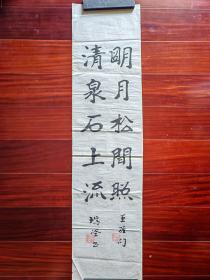 明月松間照
清泉石上流
王維詩